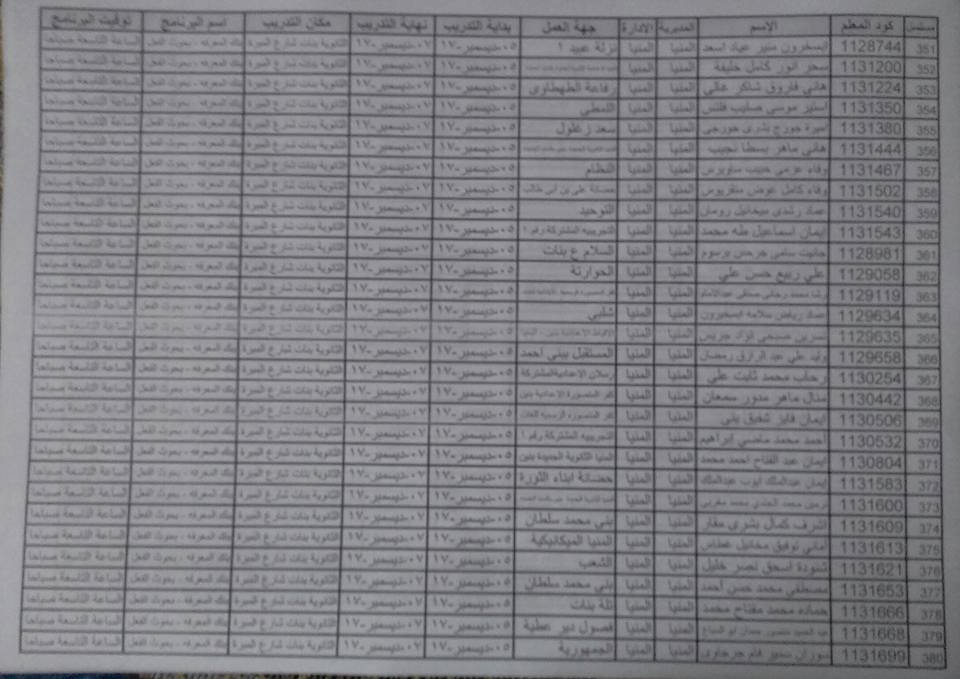 مسلسل كود المعلم الاسم المديرية الادارة جهة العمل بداية التدريب نهاية التدريب مكان التدريب اسم البرنامج توقيت البرنامج
351 1128744 ابسخرون منير عياد اسعد المنيا المنيا نزلة عبيد ١ ٠٥-ديسمبر-١٧ ٠٧-ديسمبر-١٧ الثانوية بنات شارع الميرة بنك المعرفه - بحوث الفعل الساعة التاسعة صباحا
352 1131200 سحر انور كامل خليفة المنيا المنيا ٠٥-ديسمبر-١٧ ٠٧-ديسمبر-١٧ الثانوية بنات شارع الميرة بنك المعرفه - بحوث الفعل الساعة التاسعة صباحا
353 1131224 هاني فاروق شاكر غالي المنيا المنيا رفاعة الطهطاوى ٠٥-ديسمبر-١٧ ٠٧-ديسمبر-١٧ الثانوية بنات شارع الميرة بنك المعرفه - بحوث الفعل الساعة التاسعة صباحا
354 1131350 استير موسى صليب فلتس المنيا المنيا اللمطى ٠٥-ديسمبر-١٧ ٠٧-ديسمبر-١٧ الثانوية بنات شارع الميرة بنك المعرفه - بحوث الفعل الساعة التاسعة صباحا
355 1131380 اميرة جورج بشرى جورجى المنيا المنيا سعد زغلول ٠٥-ديسمبر-١٧ ٠٧-ديسمبر-١٧ الثانوية بنات شارع الميرة بنك المعرفه - بحوث الفعل الساعة التاسعة صباحا
356 1131444 هانى ماهر بسطا نجيب المنيا المنيا ٠٥-ديسمبر-١٧ ٠٧-ديسمبر-١٧ الثانوية بنات شارع الميرة بنك المعرفه - بحوث الفعل الساعة التاسعة صباحا
357 1131467 وفاء عزمى حبيب ساويرس المنيا المنيا النظام ٠٥-ديسمبر-١٧ ٠٧-ديسمبر-١٧ الثانوية بنات شارع الميرة بنك المعرفه - بحوث الفعل الساعة التاسعة صباحا
358 1131502 وفاء كامل عوض منقريوس المنيا المنيا حضانة على بن ابى طالب ٠٥-ديسمبر-١٧ ٠٧-ديسمبر-١٧ الثانوية بنات شارع الميرة بنك المعرفه - بحوث الفعل الساعة التاسعة صباحا
359 1131540 عماد رشدى ميخائيل رومان المنيا المنيا التوحيد ٠٥-ديسمبر-١٧ ٠٧-ديسمبر-١٧ الثانوية بنات شارع الميرة بنك المعرفه - بحوث الفعل الساعة التاسعة صباحا
360 1131543 ايمان اسماعيل طه محمد المنيا المنيا التجريبيه المشتركة رقم ١ ٠٥-ديسمبر-١٧ ٠٧-ديسمبر-١٧ الثانوية بنات شارع الميرة بنك المعرفه - بحوث الفعل الساعة التاسعة صباحا
361 1128981 جانيت سامى جرجس برسوم المنيا المنيا السلام ع بنات ٠٥-ديسمبر-١٧ ٠٧-ديسمبر-١٧ الثانوية بنات شارع الميرة بنك المعرفه - بحوث الفعل الساعة التاسعة صباحا
362 1129058 علي ربيع حسن علي المنيا المنيا الحوارتة ٠٥-ديسمبر-١٧ ٠٧-ديسمبر-١٧ الثانوية بنات شارع الميرة بنك المعرفه - بحوث الفعل الساعة التاسعة صباحا
363 1129119 رشا محمد المنيا المنيا ٠٥-ديسمبر-١٧ ٠٧-ديسمبر-١٧ الثانوية بنات شارع الميرة بنك المعرفه - بحوث الفعل الساعة التاسعة صباحا
364 1129634 عماد رياض سلامه ابسخيرون المنيا المنيا شلبى ٠٥-ديسمبر-١٧ ٠٧-ديسمبر-١٧ الثانوية بنات شارع الميرة بنك المعرفه - بحوث الفعل الساعة التاسعة صباحا
365 1129635 نسرين صبحى فؤاد جريس المنيا المنيا الاقباط الاعدادية بنين - المنيا ٠٥-ديسمبر-١٧ ٠٧-ديسمبر-١٧ الثانوية بنات شارع الميرة بنك المعرفه - بحوث الفعل الساعة التاسعة صباحا
366 1129658 وليد علي عبد الرازق رمضان المنيا المنيا المستقبل ببنى احمد ٠٥-ديسمبر-١٧ ٠٧-ديسمبر-١٧ الثانوية بنات شارع الميرة بنك المعرفه - بحوث الفعل الساعة التاسعة صباحا
367 1130254 رحاب محمد ثابت علي المنيا المنيا رسلان الإعدادية المشتركة ٠٥-ديسمبر-١٧ ٠٧-ديسمبر-١٧ الثانوية بنات شارع الميرة بنك المعرفه - بحوث الفعل الساعة التاسعة صباحا
368 1130442 منال ماهر مدور سمعان المنيا المنيا كفر المنصورة الاعدادية بنين ٠٥-ديسمبر-١٧ ٠٧-ديسمبر-١٧ الثانوية بنات شارع الميرة بنك المعرفه - بحوث الفعل الساعة التاسعة صباحا
369 1130506 ايمان فايز شفيق بنى المنيا المنيا كفر المنصوره الرسمية للغات ٠٥-ديسمبر-١٧ ٠٧-ديسمبر-١٧ الثانوية بنات شارع الميرة بنك المعرفه - بحوث الفعل الساعة التاسعة صباحا
370 1130532 احمد محمد ماضي إبراهيم المنيا المنيا التجريبيه المشتركة رقم ١ ٠٥-ديسمبر-١٧ ٠٧-ديسمبر-١٧ الثانوية بنات شارع الميرة بنك المعرفه - بحوث الفعل الساعة التاسعة صباحا
371 1130804 ايمان عبد الفتاح احمد محمد المنيا المنيا المنيا الثانوية الجديدة بنين ٠٥-ديسمبر-١٧ ٠٧-ديسمبر-١٧ الثانوية بنات شارع الميرة بنك المعرفه - بحوث الفعل الساعة التاسعة صباحا
372 1131583 ايمان عبدالملك ايوب عبدالملك المنيا المنيا حضانة ابناء الثورة ٠٥-ديسمبر-١٧ ٠٧-ديسمبر-١٧ الثانوية بنات شارع الميرة بنك المعرفه - بحوث الفعل الساعة التاسعة صباحا
373 1131600 نرمين محمد محمد مغربى المنيا المنيا ٠٥-ديسمبر-١٧ ٠٧-ديسمبر-١٧ الثانوية بنات شارع الميرة بنك المعرفه - بحوث الفعل الساعة التاسعة صباحا
374 1131609 اشرف كمال بشرى مقار المنيا المنيا بنى محمد سلطان ٠٥-ديسمبر-١٧ ٠٧-ديسمبر-١٧ الثانوية بنات شارع الميرة بنك المعرفه - بحوث الفعل الساعة التاسعة صباحا
375 1131613 امانى توفيق مخائيل غطاس المنيا المنيا المنيا الميكانيكية ٠٥-ديسمبر-١٧ ٠٧-ديسمبر-١٧ الثانوية بنات شارع الميرة بنك المعرفه - بحوث الفعل الساعة التاسعة صباحا
376 1131621 شنودة اسحق نصر خليل المنيا المنيا الشعب ٠٥-ديسمبر-١٧ ٠٧-ديسمبر-١٧ الثانوية بنات شارع الميرة بنك المعرفه - بحوث الفعل الساعة التاسعة صباحا
377 1131653 مصطفى محمد حسن أحمد المنيا المنيا بنى محمد سلطان ٠٥-ديسمبر-١٧ ٠٧-ديسمبر-١٧ الثانوية بنات شارع الميرة بنك المعرفه - بحوث الفعل الساعة التاسعة صباحا
378 1131666 حماده محمد مفتاح محمد المنيا المنيا تلة بنات ٠٥-ديسمبر-١٧ ٠٧-ديسمبر-١٧ الثانوية بنات شارع الميرة بنك المعرفه - بحوث الفعل الساعة التاسعة صباحا
379 1131668 عبد الحميد منصور المنيا المنيا فصول دير عطية ٠٥-ديسمبر-١٧ ٠٧-ديسمبر-١٧ الثانوية بنات شارع الميرة بنك المعرفه - بحوث الفعل الساعة التاسعة صباحا
380 1131699 سوزان سمير فام جرجاوى المنيا المنيا الجمهورية ٠٥-ديسمبر-١٧ ٠٧-ديسمبر-١٧ الثانوية بنات شارع الميرة بنك المعرفه - بحوث الفعل الساعة التاسعة صباحا